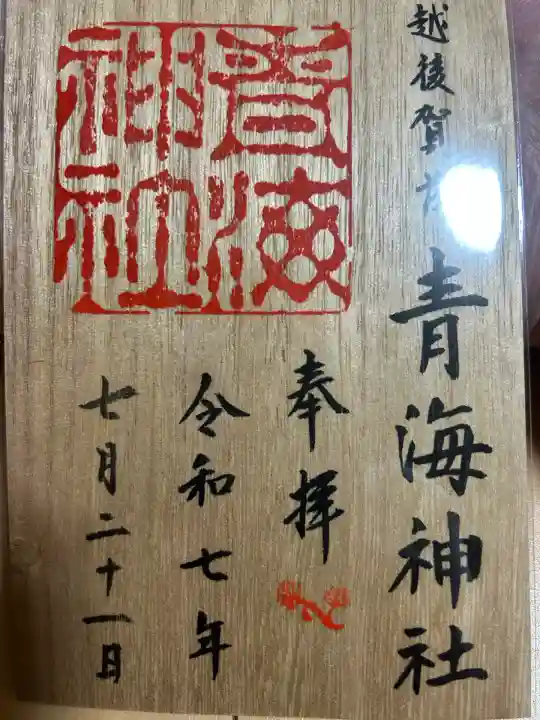 越後賀
青海神社
奉拝
令和七年
七月二十一日
青海
神社